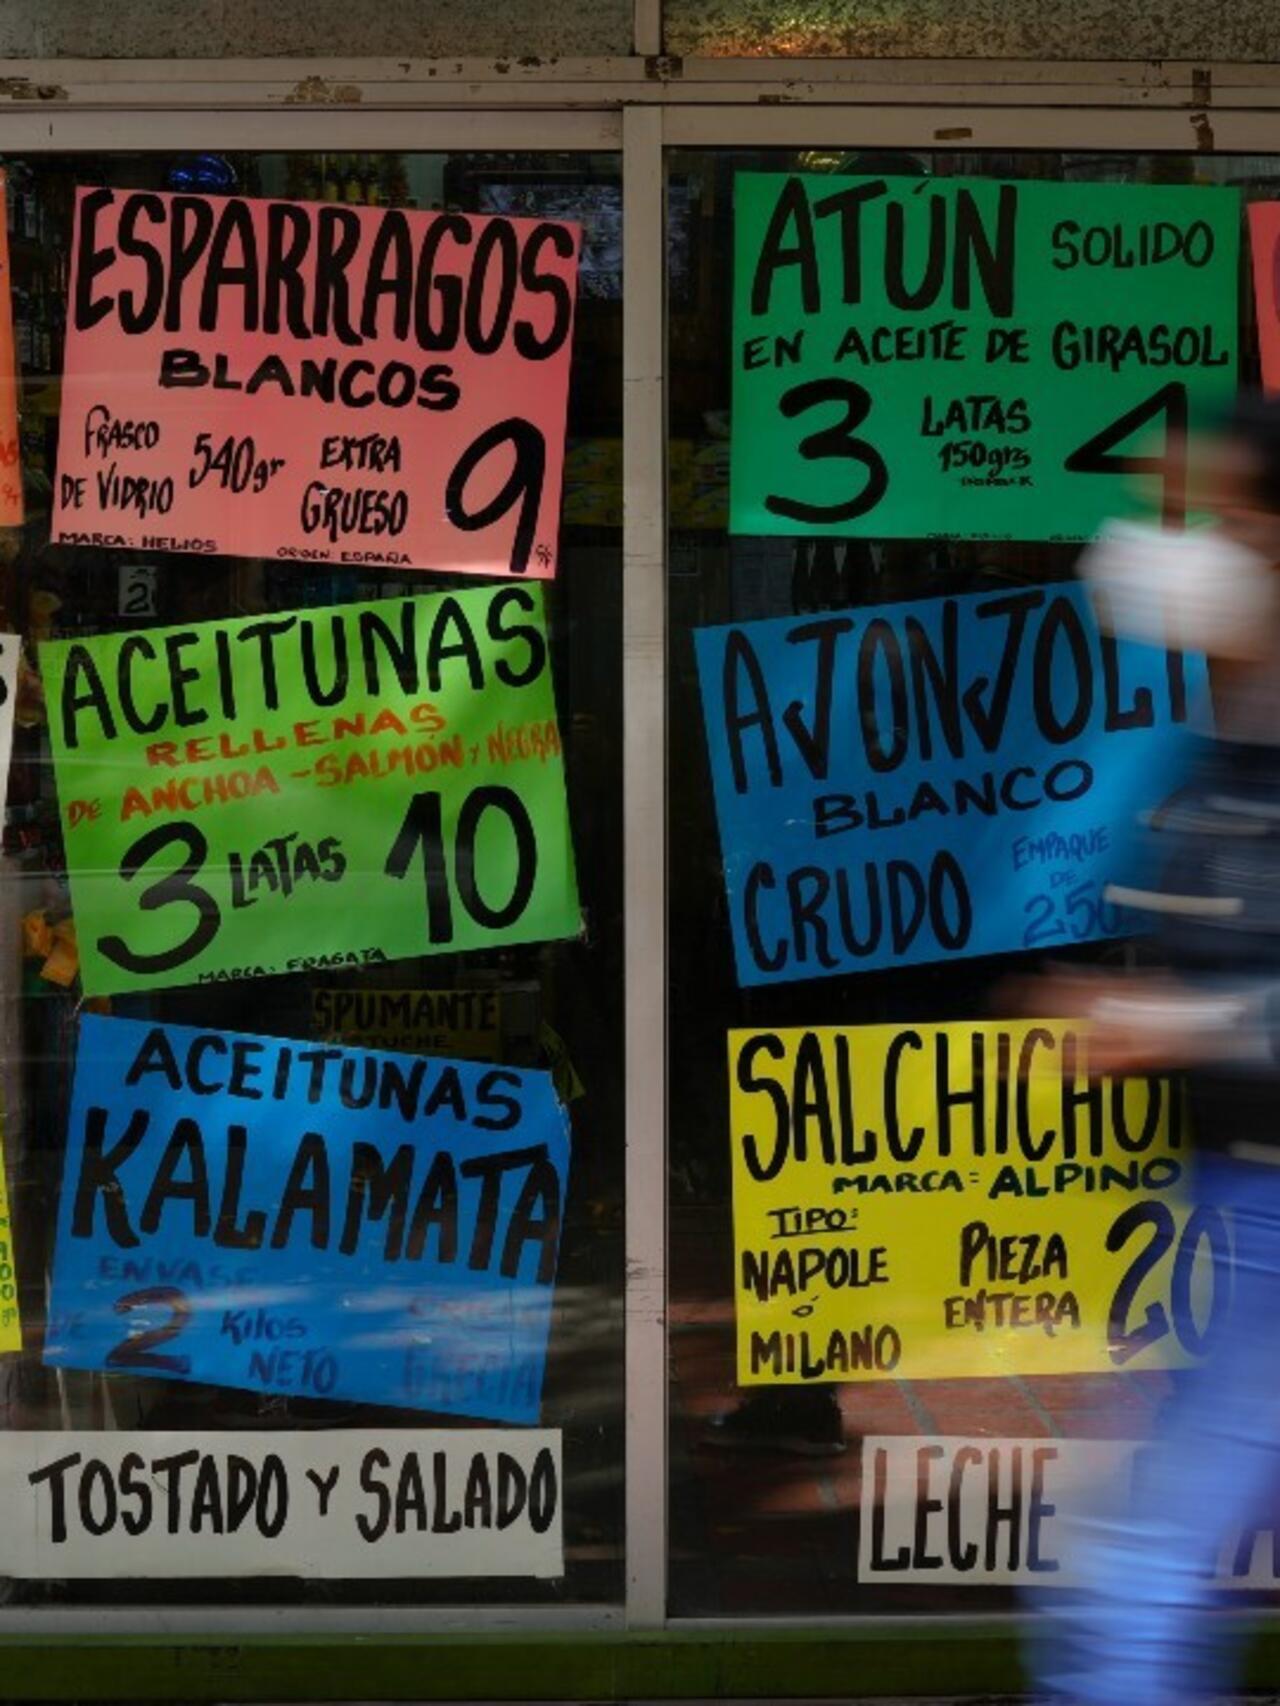 ESPARRAGOS
BLANCOS
FRASCO
DE VIDRIO
540gr
EXTRA
GRUESO
9
MARCA: HELIOS
ORIGEN: ESPAÑA
2
ACEITUNAS
RELLENAS
DE ANCHOA - SALMÓN Y NEGRA
3 LATAS 10
MARCA: FRAGATA
SPUMANTE
ACEITUNAS
KALAMATA
ENVASE
DE 2 Kilos
NETO
GRECIA
TOSTADO Y SALADO
ATÚN SOLIDO
EN ACEITE DE GIRASOL
3 LATAS 4
150grs
AJONJOLI
BLANCO
CRUDO
EMPAQUE
DE
250
SALCHICHON
MARCA: ALPINO
TIPO:
NAPOLE
Ó
MILANO
PIEZA
ENTERA
20
LECHE